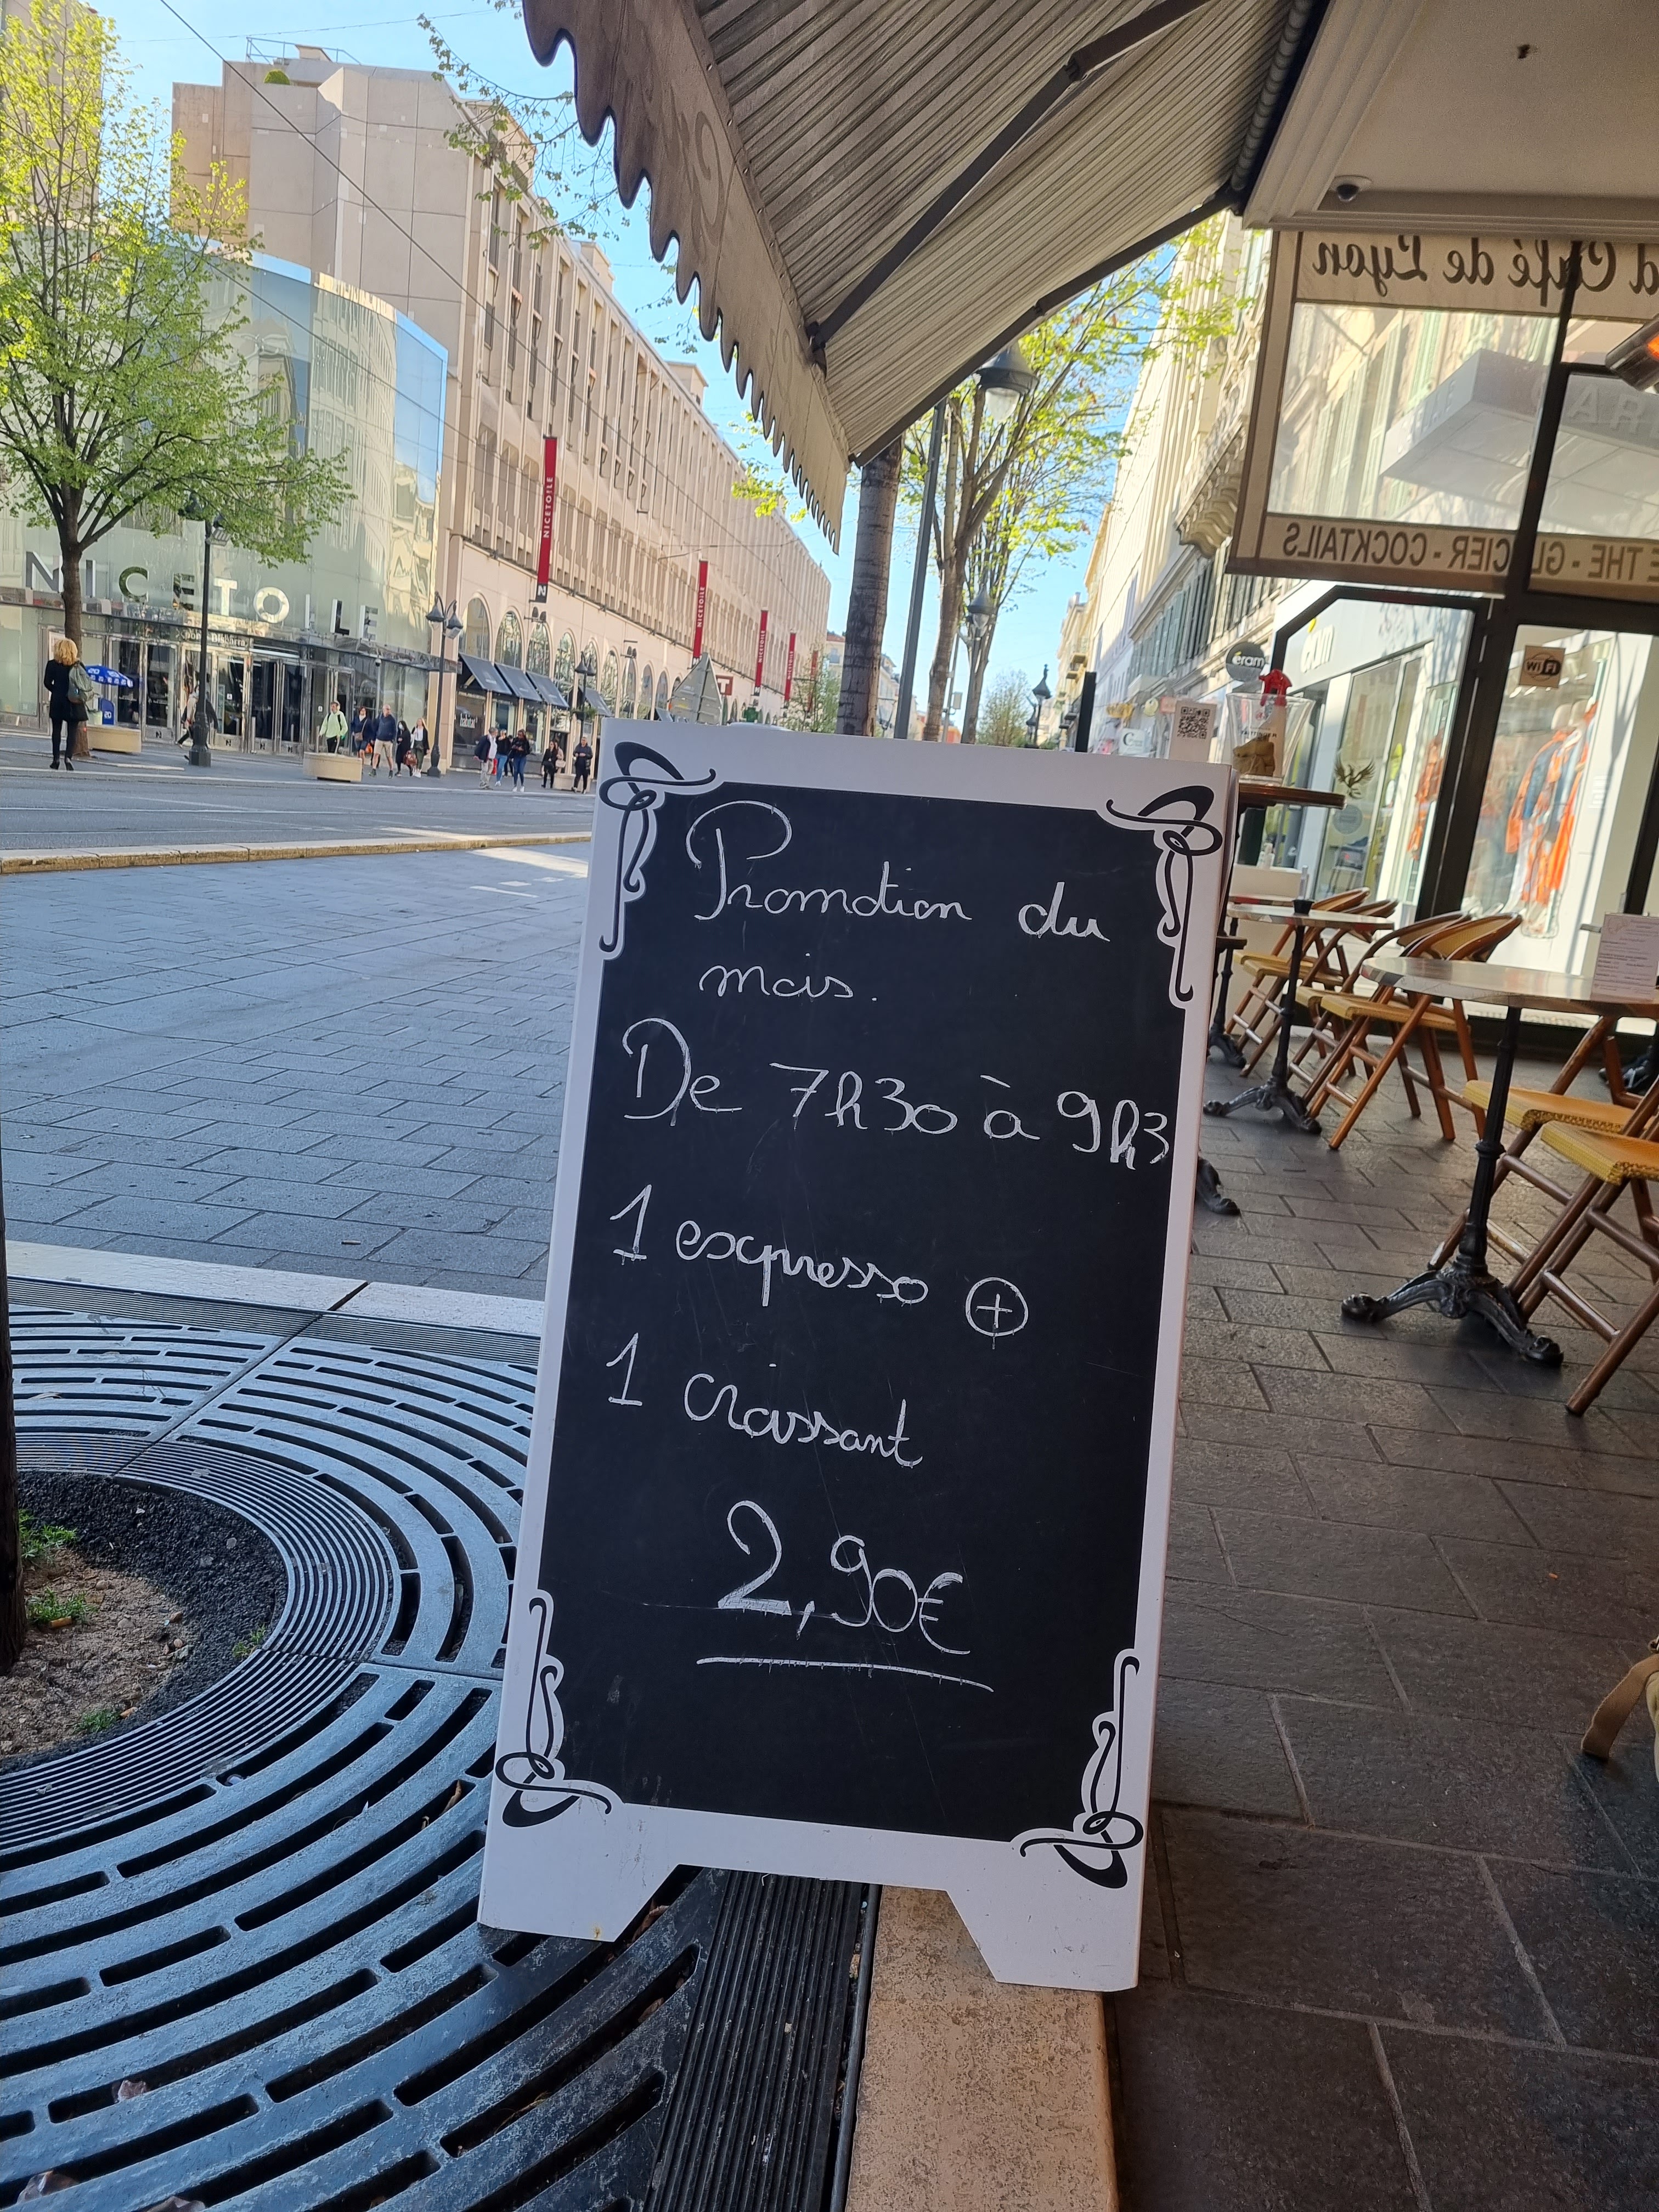 NICETOILE
NICETOILE
NICETOILE
d Café de Lyon
THE - GLACIER - COCKTAILS
éram
WiFi
Promotion du
mois.
De 7h30 à 9h3
1 expresso +
1 croissant
2,90€